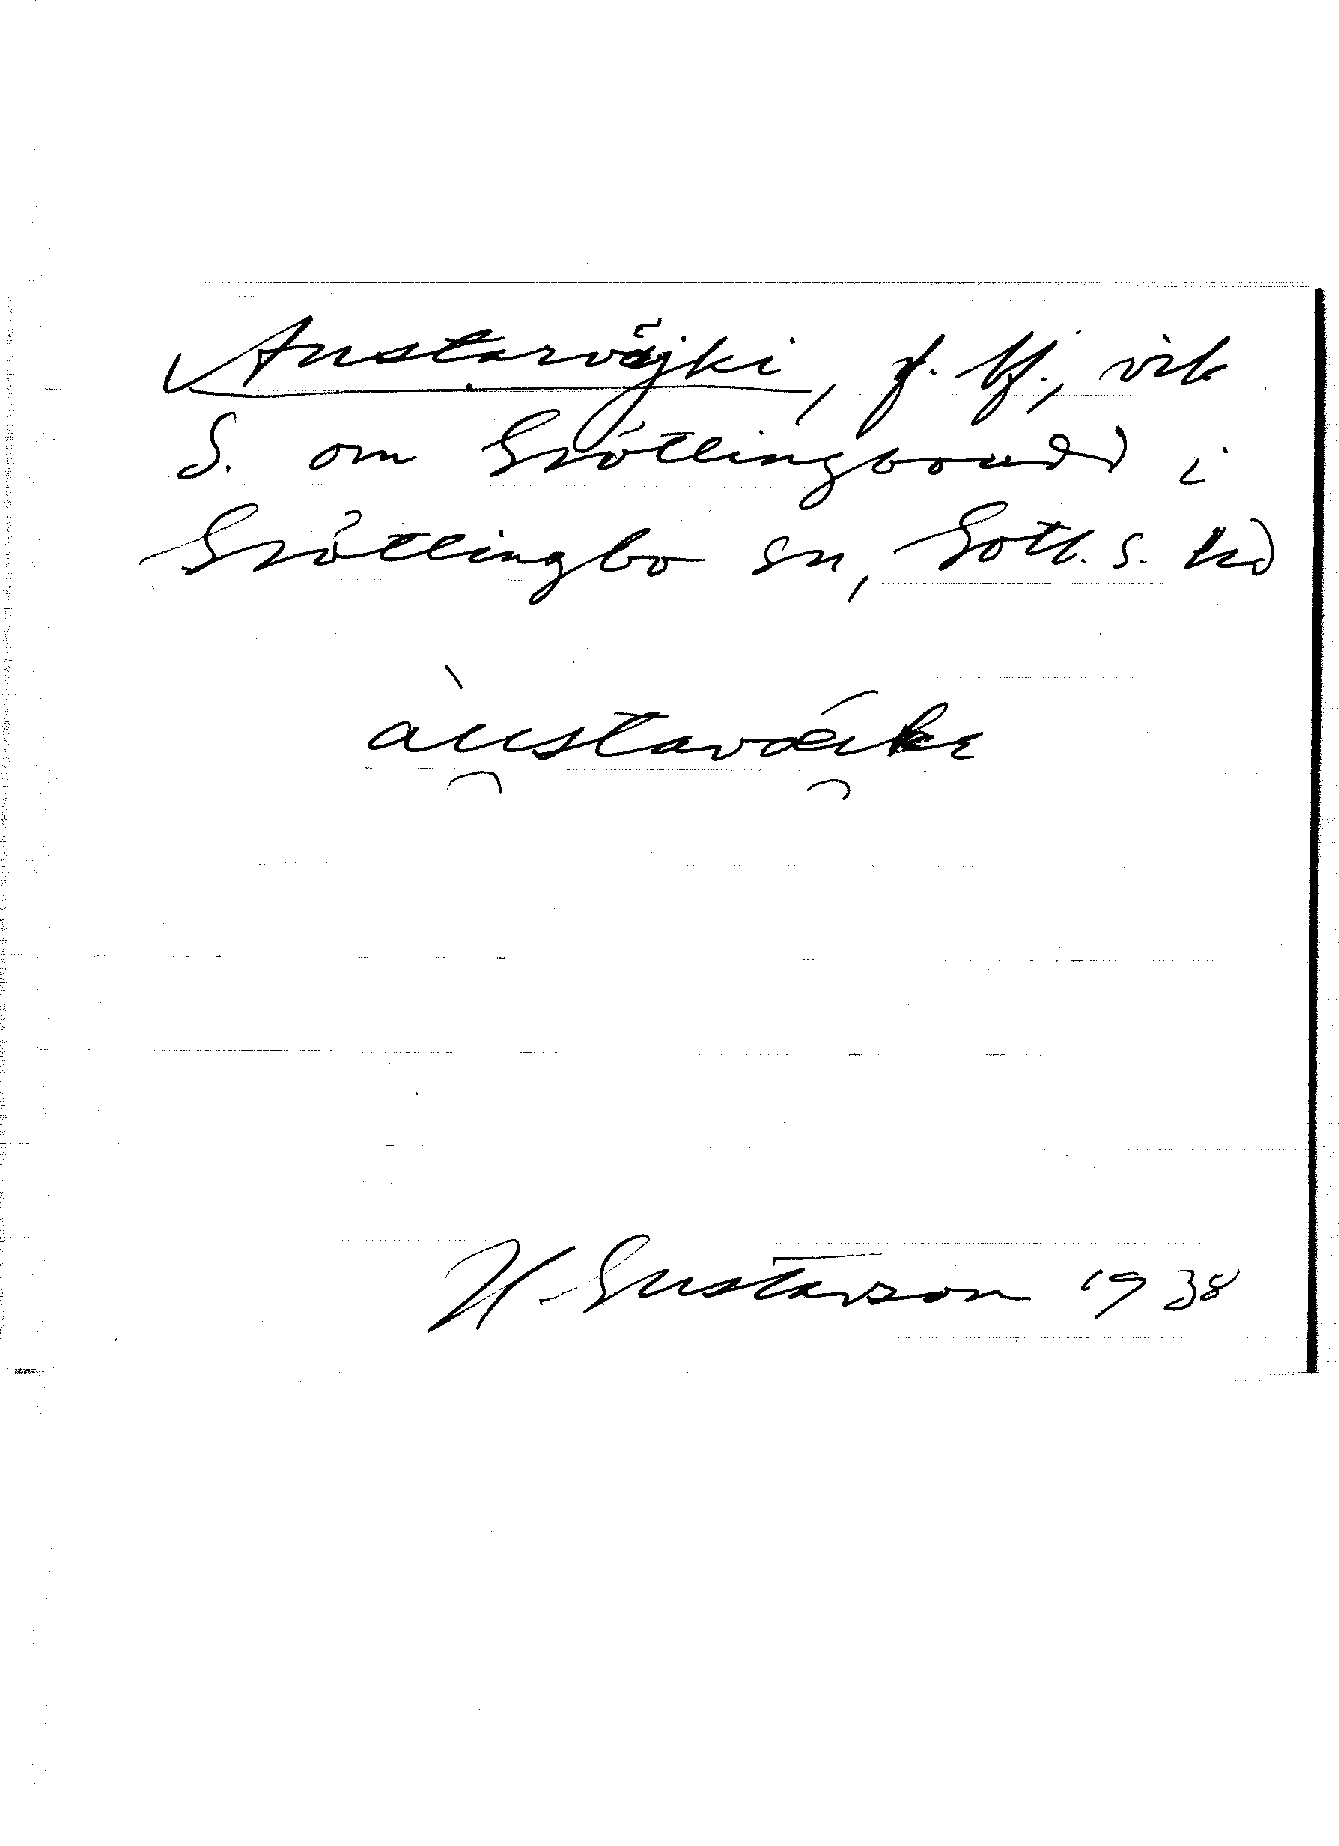 Austarväjki, f. bf., vik
S. om Grötlingboudd i
Grötlingbo sn, Gotl. s. hd
àu̯stavæi̯kɩ
H. Gustavson 1938